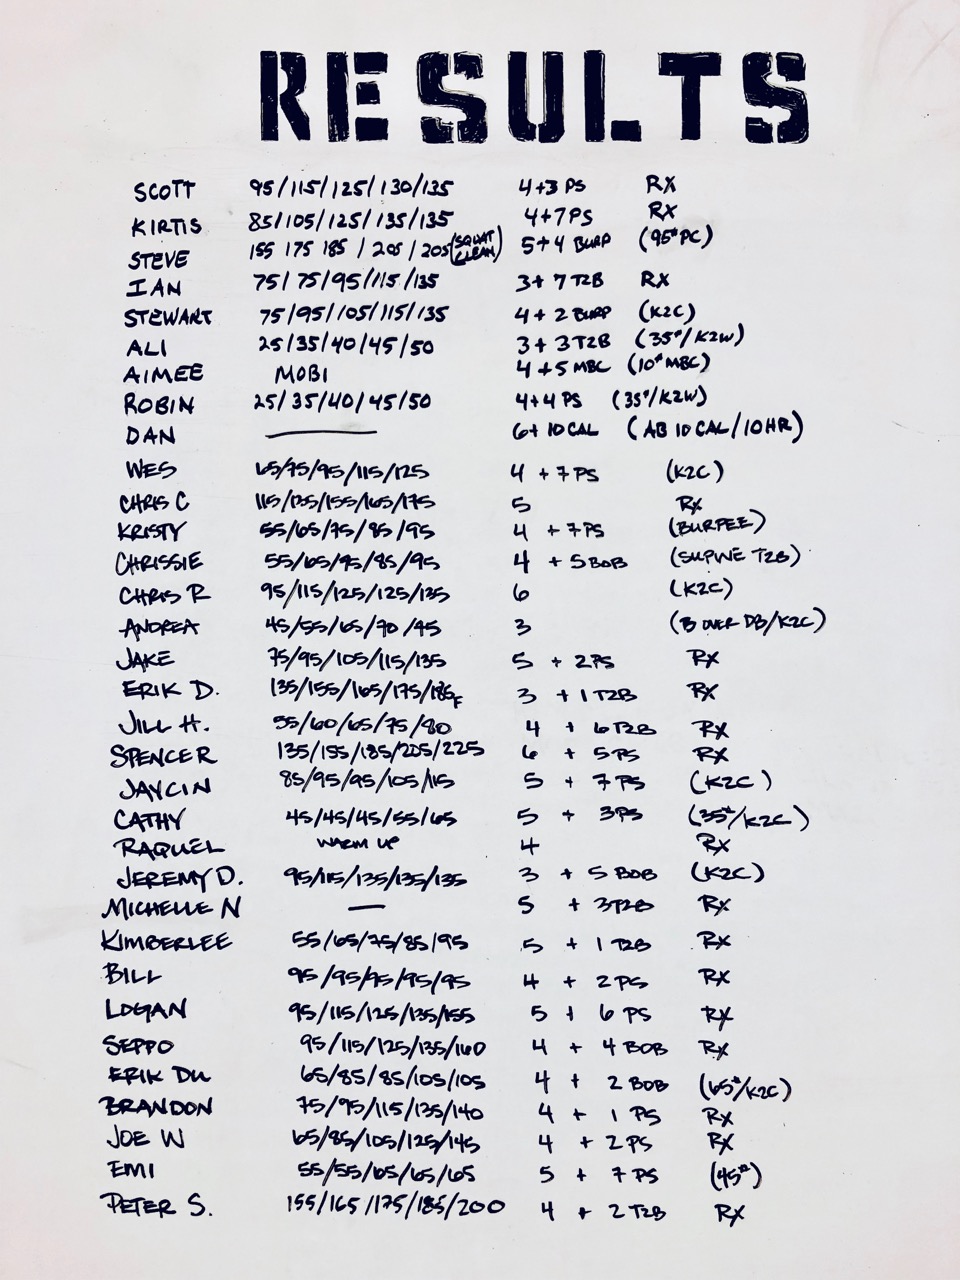 RESULTS
SCOTT 95/115/125/130/135 4+3 PS RX
KIRTIS 85/105/125/135/135 4+7 PS RX
STEVE 155 175 185 / 205 / 205 (SQUAT CLEAN) 5+4 BURP (95# PC)
IAN 75/75/95/115/135 3+7 T2B RX
STEWART 75/95/105/115/135 4+2 BURP (K2C)
ALI 25/35/40/45/50 3+3 T2B (35#/K2W)
AIMEE MOBI 4+5 MBC (10# MBC)
ROBIN 25/35/40/45/50 4+4 PS (35#/K2W)
DAN — 6+10 CAL (AB 10 CAL/10HR)
WES 65/75/95/115/125 4 +7 PS (K2C)
CHRIS C 115/135/155/165/175 5 RX
KRISTY 55/65/75/85/95 4 +7 PS (BURPEE)
CHRISSIE 55/65/75/85/95 4 +5 BOB (SUPINE T2B)
CHRIS R 95/115/125/125/135 6 (K2C)
ANDREA 45/55/65/70/95 3 (B OVER DB/K2C)
JAKE 75/95/105/115/135 5 + 2 PS RX
ERIK D. 135/155/165/175/185F 3 + 1 T2B RX
JILL H. 55/60/65/75/80 4 + 6 T2B RX
SPENCER 135/155/185/205/225 6 + 5 PS RX
JAYCIN 85/95/95/105/115 5 + 7 PS (K2C)
CATHY 45/45/45/55/65 5 + 3 PS (35#/K2C)
RAQUEL WARM UP 4 RX
JEREMY D. 95/115/135/135/135 3 + 5 BOB (K2C)
MICHELLE N — 5 + 3 T2B RX
KIMBERLEE 55/65/75/85/95 5 + 1 T2B RX
BILL 95/95/95/95/95 4 + 2 PS RX
LOGAN 95/115/125/135/155 5 + 6 PS RX
SEPPO 95/115/125/135/160 4 + 4 BOB RX
ERIK DU 65/85/85/105/105 4 + 2 BOB (65#/K2C)
BRANDON 75/95/115/135/140 4 + 1 PS RX
JOE W 65/85/105/125/145 4 + 2 PS RX
EMI 55/55/65/65/65 5 + 7 PS (45#)
PETER S. 155/165/175/185/200 4 + 2 T2B RX